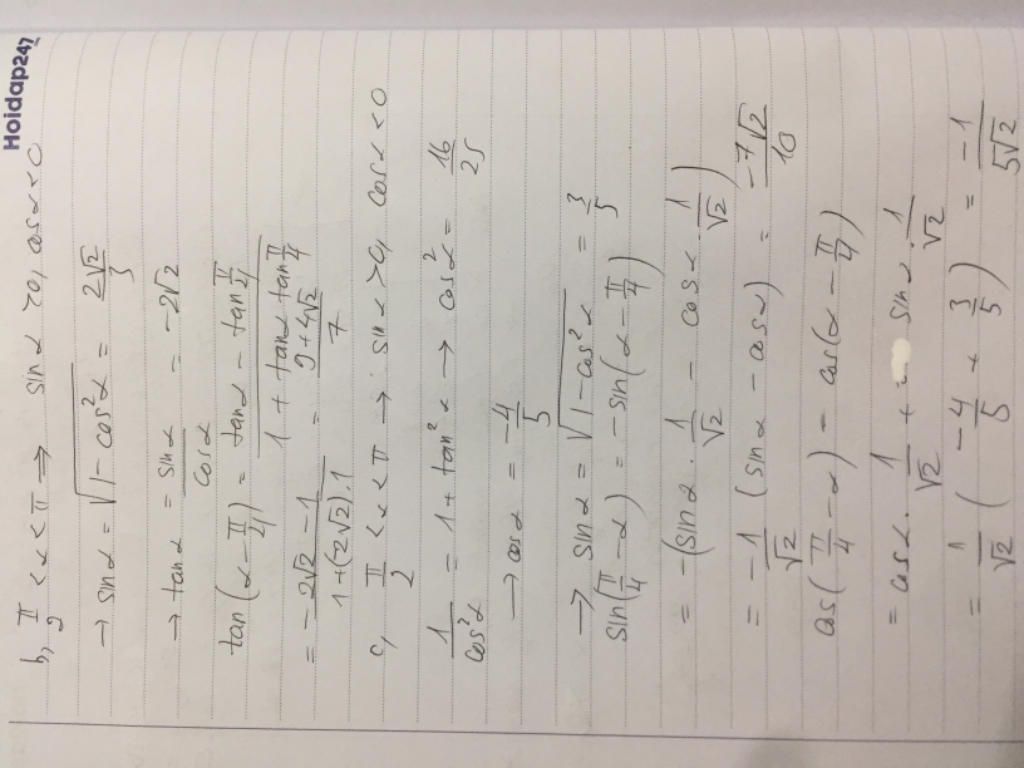 Hoidap247
b, π/2 < α < π ⇒ sin α > 0, cos α < 0
→ sin α = √(1 - cos²α) = 2√2/3
→ tan α = sin α/cos α = -2√2
tan(α - π/4) = (tan α - tan π/4)/(1 + tan α · tan π/4)
= (-2√2 - 1)/(1 + (-2√2).1) = (9 + 4√2)/7
c, π/2 < α < π → sin α > 0, cos α < 0
1/cos²α = 1 + tan²α → cos²α = 16/25
→ cos α = -4/5
→ sin α = √(1 - cos²α) = 3/5
sin(π/4 - α) = - sin(α - π/4)
= -(sin α . 1/√2 - cos α . 1/√2)
= -1/√2 (sin α - cos α) = -7√2/10
cos(π/4 - α) = cos(α - π/4)
= cos α . 1/√2 + sin α . 1/√2
= 1/√2 (-4/5 + 3/5) = -1/5√2